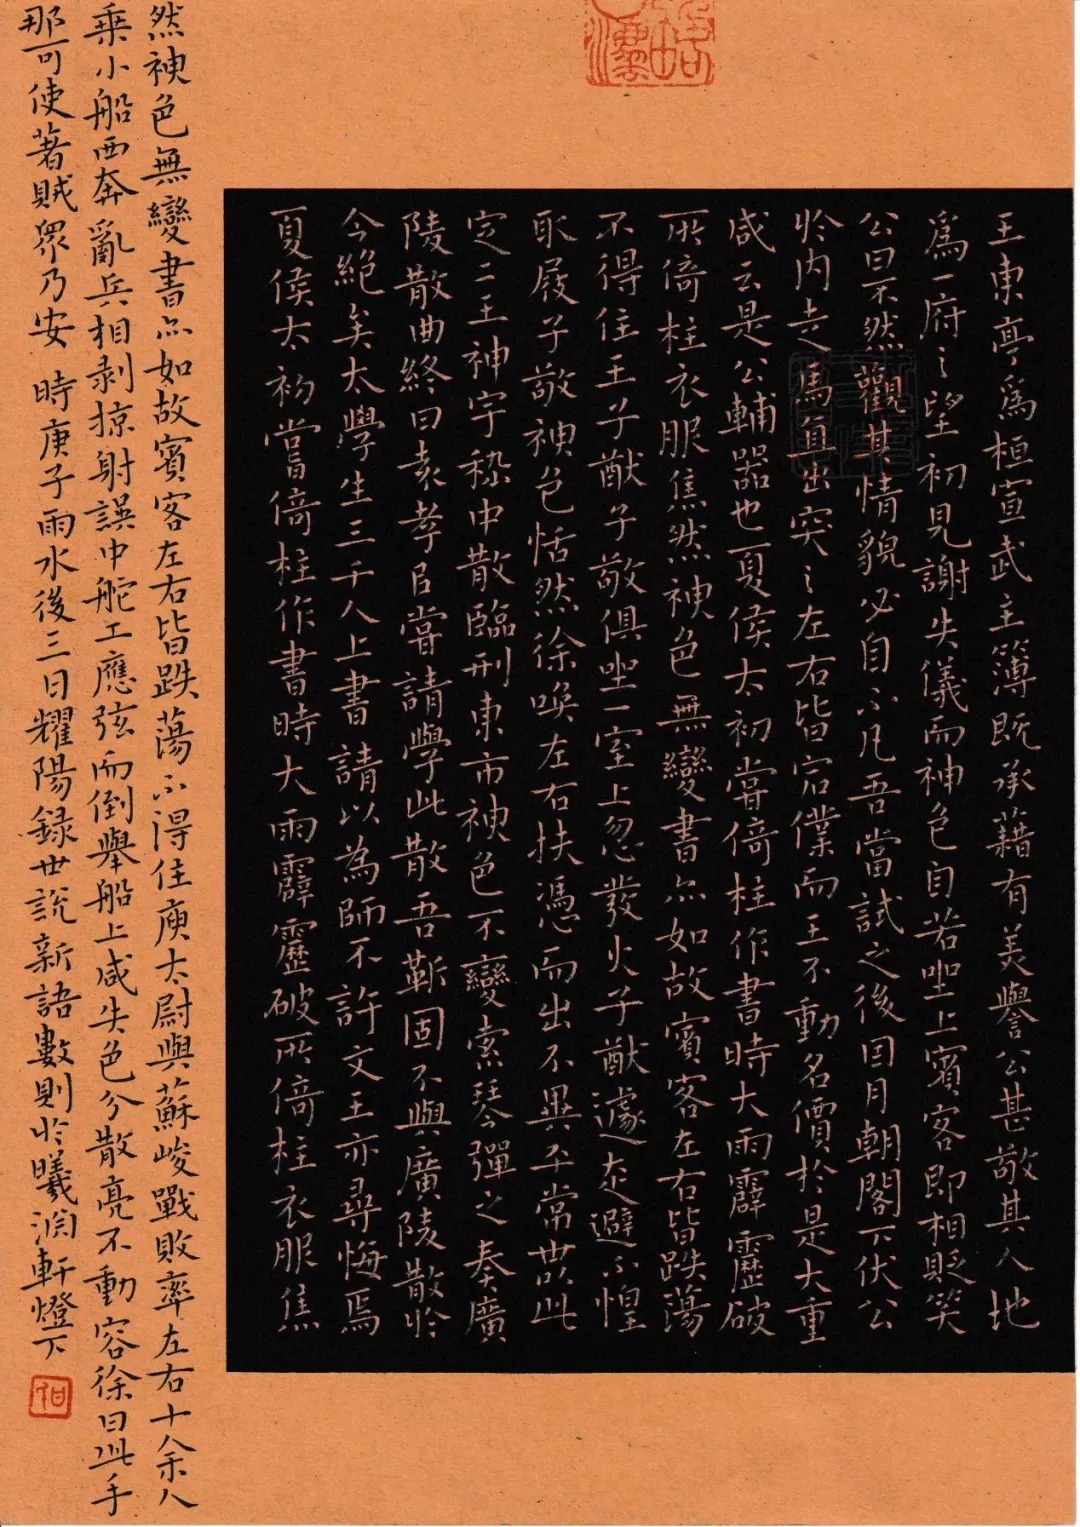 王東亭為桓宣武主簿既承藉有美譽公甚敬其人地
為一府之望初見謝失儀而神色自若坐上賓客即相貶笑
公曰不然觀其情貌必自不凡吾當試之後因月朝閣下伏公
於内走馬直出突之左右皆宕僕而王不動名價於是大重
咸云是公輔器也夏侯太初嘗倚柱作書時大雨霹靂破
所倚柱衣服焦然神色無變書亦如故賓客左右皆跌蕩
不得住王子猷子敬俱坐一室上忽發火子猷遽走避不惶
取屐子敬神色恬然徐喚左右扶憑而出不異平常世以此
定二王神宇嵇中散臨刑東市神色不變索琴彈之奏廣
陵散曲終曰袁孝尼嘗請學此散吾靳固不與廣陵散於
今絕矣太學生三千人上書請以為師不許文王亦尋悔焉
夏侯太初嘗倚柱作書時大雨霹靂破所倚柱衣服焦
然神色無變書亦如故賓客左右皆跌蕩不得住庾太尉與蘇峻戰敗率左右十余人
乘小船西奔亂兵相剥掠射誤中舵工應弦而倒舉船上咸失色分散亮不動容徐曰此手
那可使著賊眾乃安 時庚子雨水後三日耀陽録世說新語數則於曦淵軒燈下